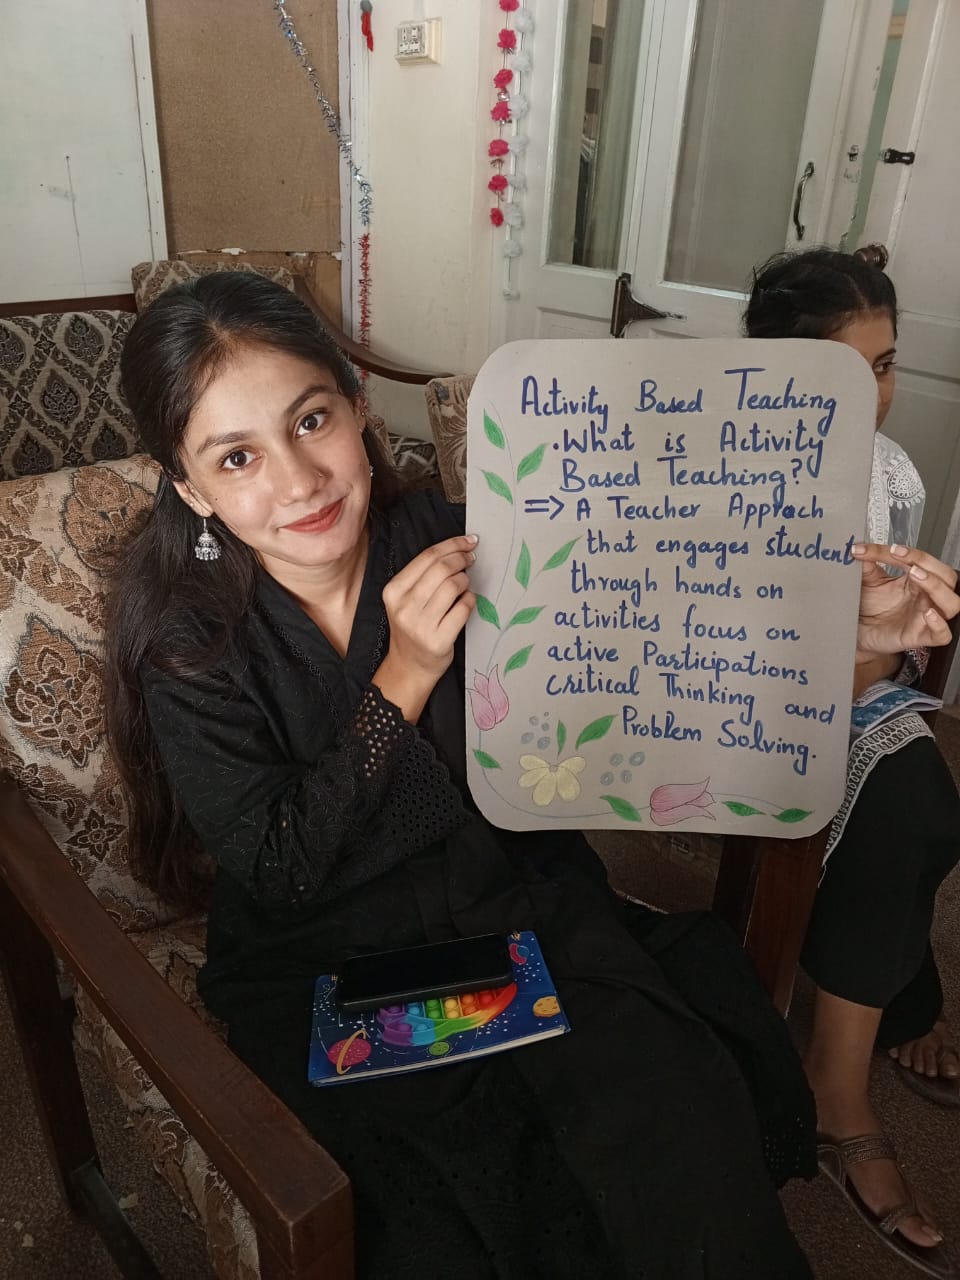 Activity Based Teaching
.What is Activity
Based Teaching?
=> A Teacher Appraoch
that engages student
through hands on
activities focus on
active Participations
critical Thinking and
Problem Solving.